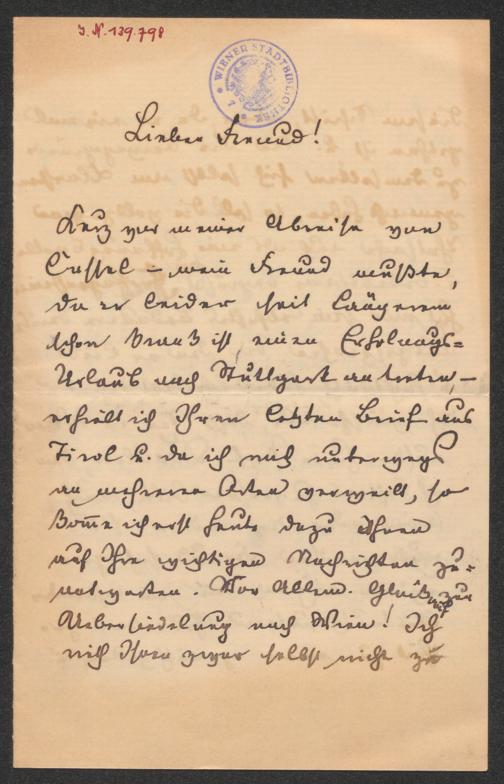 J. N. 139.798
WIENER STADTBIBLIOTHEK
Lieber Freund!
Kurz vor meiner Abreise von
Cassel – mein Freund mußte,
da er leider seit längerem
schon krank ist, einen Erholungs=
Urlaub nach Stuttgart antreten, –
erhielt ich Ihren letzten Brief aus
Tirol u. da ich mich unterwegs
an mehreren Orten verweilt, so
komme ich erst heute dazu Ihnen
auf Ihre wichtigen Nachrichten zu
antworten. Vor Allem. Glück auf zur
Uebersiedelung nach Wien! Ich
zwar selbst nicht zu